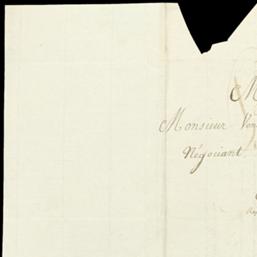 M
Monsieur Von
Négociant